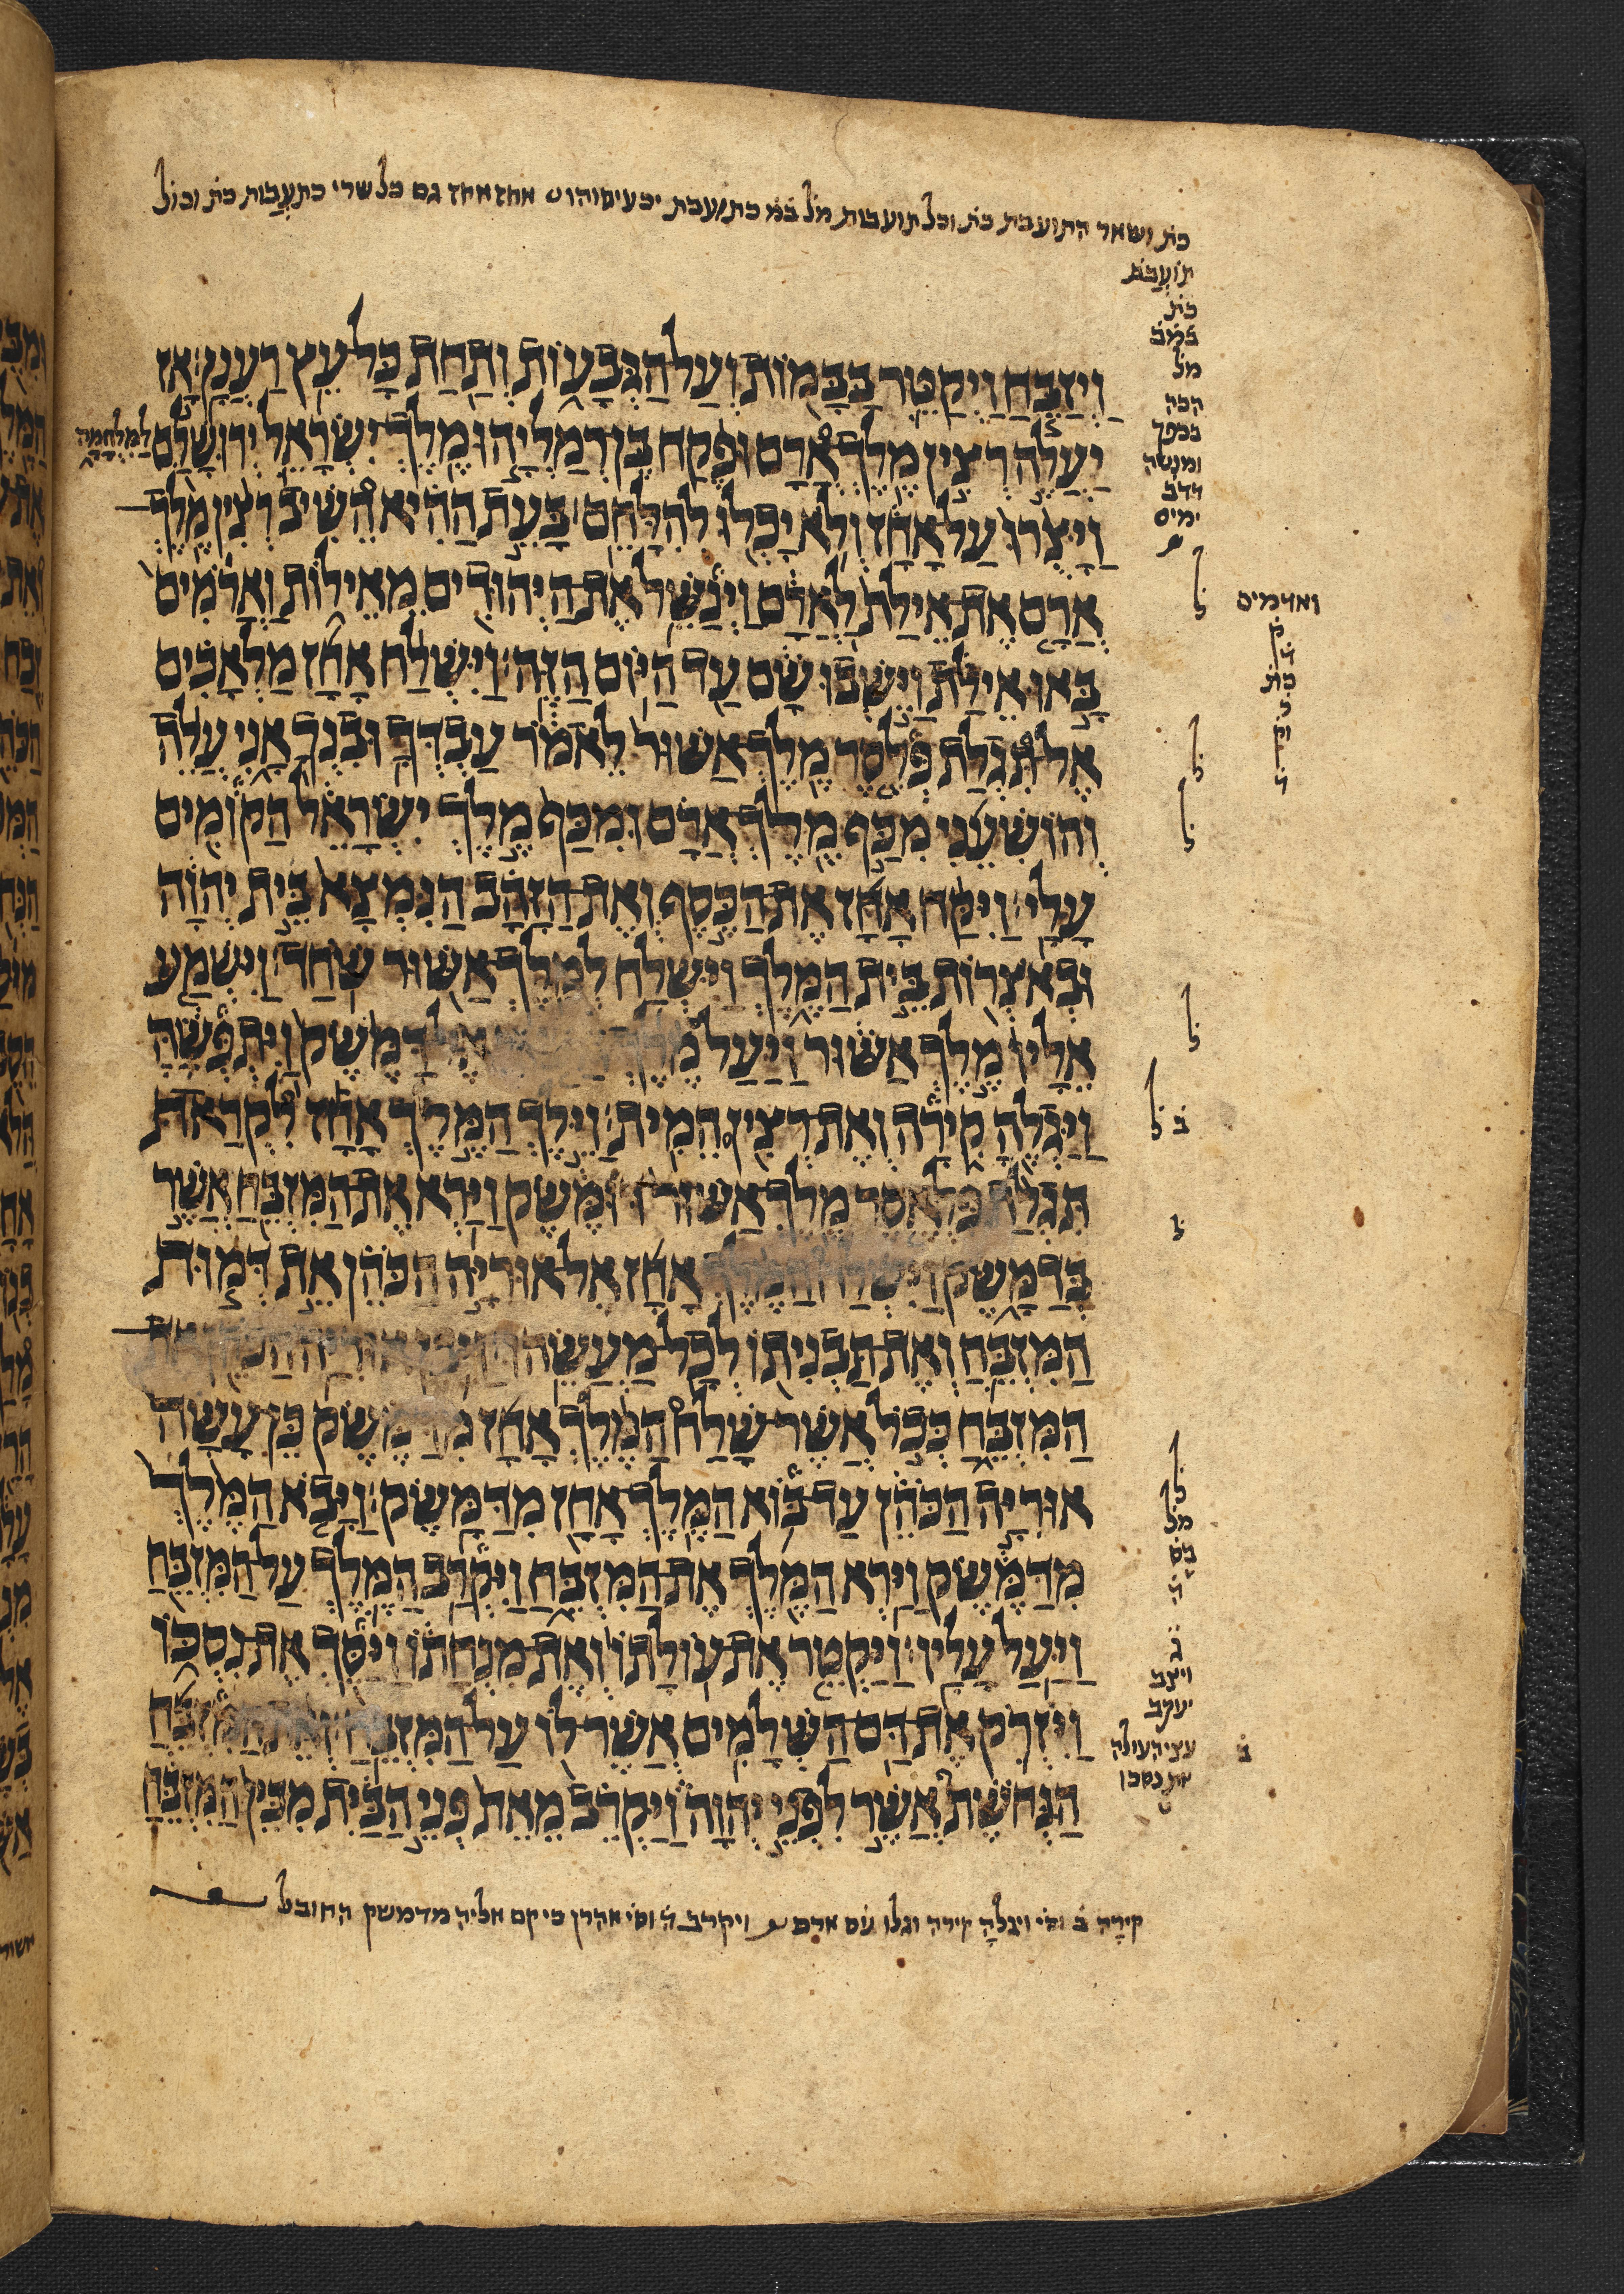 כת ושאר התועבת כת וכל תועבות מל במ כתועבת יכעיסוהו אחז אחז גם כל שרי כתעבות כת וכול
תועבת
כת
במב
מל
הכה
בספר
ומנשה
דדב
ימים
וַיְזַבֵּחַ וַיְקַטֵּר בַּבָּמוֹת וְעַל הַגְּבָעוֹת וְתַחַת כָּל עֵץ רַעֲנָן׃ אָז
יַעֲלֶה רְצִין מֶלֶךְ אֲרָם וּפֶקַח בֶּן רְמַלְיָהוּ מֶלֶךְ יִשְׂרָאֵל יְרוּשָׁלִַם לַמִּלְחָמָה
וַיָּצֻרוּ עַל אָחָז וְלֹא יָכְלוּ לְהִלָּחֵם׃ בָּעֵת הַהִיא הֵשִׁיב רְצִין מֶלֶךְ
אֲרָם אֶת אֵילַת לַאֲרָם וַיְנַשֵּׁל אֶת הַיְהוּדִים מֵאֵילוֹת וַאֲרַמִּים
ואדמים
ק
כת
ק
בָּאוּ אֵילַת וַיֵּשְׁבוּ שָׁם עַד הַיּוֹם הַזֶּה׃ וַיִּשְׁלַח אָחָז מַלְאָכִים
אֶל תִּגְלַת פְּלֶסֶר מֶלֶךְ אַשּׁוּר לֵאמֹר עַבְדְּךָ וּבִנְךָ אָנִי עֲלֵה
וְהוֹשִׁעֵנִי מִכַּף מֶלֶךְ אֲרָם וּמִכַּף מֶלֶךְ יִשְׂרָאֵל הַקּוֹמִים
עָלָי׃ וַיִּקַּח אָחָז אֶת הַכֶּסֶף וְאֶת הַזָּהָב הַנִּמְצָא בֵּית יְהוָה
וּבְאֹצְרוֹת בֵּית הַמֶּלֶךְ וַיִּשְׁלַח לְמֶלֶךְ אַשּׁוּר שֹׁחַד׃ וַיִּשְׁמַע
אֵלָיו מֶלֶךְ אַשּׁוּר וַיַּעַל דַּמֶּשֶׂק וַיִּתְפְּשֶׂהָ
וַיַּגְלֶהָ קִירָה וְאֶת רְצִין הֵמִית׃ וַיֵּלֶךְ הַמֶּלֶךְ אָחָז לִקְרַאת
תִּגְלַת פִּלְאֶסֶר מֶלֶךְ אַשּׁוּר דּוּמֶּשֶׂק וַיַּרְא אֶת הַמִּזְבֵּחַ אֲשֶׁר
בְּדַמָּשֶׂק וַיִּשְׁלַח הַמֶּלֶךְ אָחָז אֶל אוּרִיָּה הַכֹּהֵן אֶת דְּמוּת
הַמִּזְבֵּחַ וְאֶת תַּבְנִיתוֹ לְכָל מַעֲשֵׂהוּ׃ וַיִּבֶן אוּרִיָּה הַכֹּהֵן אֶת
הַמִּזְבֵּחַ כְּכֹל אֲשֶׁר שָׁלַח הַמֶּלֶךְ אָחָז מִדַּמֶּשֶׂק כֵּן עָשָׂה
אוּרִיָּה הַכֹּהֵן עַד בּוֹא הַמֶּלֶךְ אָחָז מִדַּמָּשֶׂק׃ וַיָּבֹא הַמֶּלֶךְ
מִדַּמֶּשֶׂק וַיַּרְא הַמֶּלֶךְ אֶת הַמִּזְבֵּחַ וַיִּקְרַב הַמֶּלֶךְ עַל הַמִּזְבֵּחַ
וַיַּעַל עָלָיו׃ וַיַּקְטֵר אֶת עוֹלָתוֹ וְאֶת מִנְחָתוֹ וַיַּסֵּךְ אֶת נִסְכּוֹ
וַיִּזְרֹק אֶת דַּם הַשְּׁלָמִים אֲשֶׁר לוֹ עַל הַמִּזְבֵּחַ׃ וְאֵת הַמִּזְבֵּחַ
הַנְּחֹשֶׁת אֲשֶׁר לִפְנֵי יְהוָה וַיַּקְרֵב מֵאֵת פְּנֵי הַבַּיִת מִבֵּין הַמִּזְבֵּחַ
ג
ויצב
יעקב
עצי העולה
את נסכו
קירה ב וסי ויגלה קירה וגלו עם ארם ויקרב ה וסי אהרן כי קם אליה מדמשק החובל